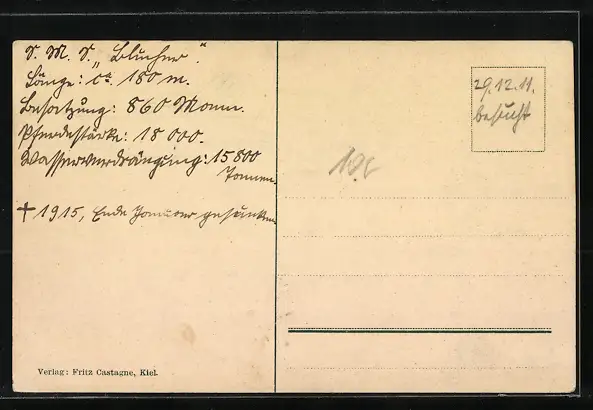 S. M. S. „Blücher".
Länge: ca 180 m.
Besatzung: 860 Mann.
Pferdestärke: 18 000.
Wasserverdrängung: 15800
Tonnen.
† 1915, Ende Januar gesunken.
29.12.11.
besucht
Verlag: Fritz Castagne, Kiel.